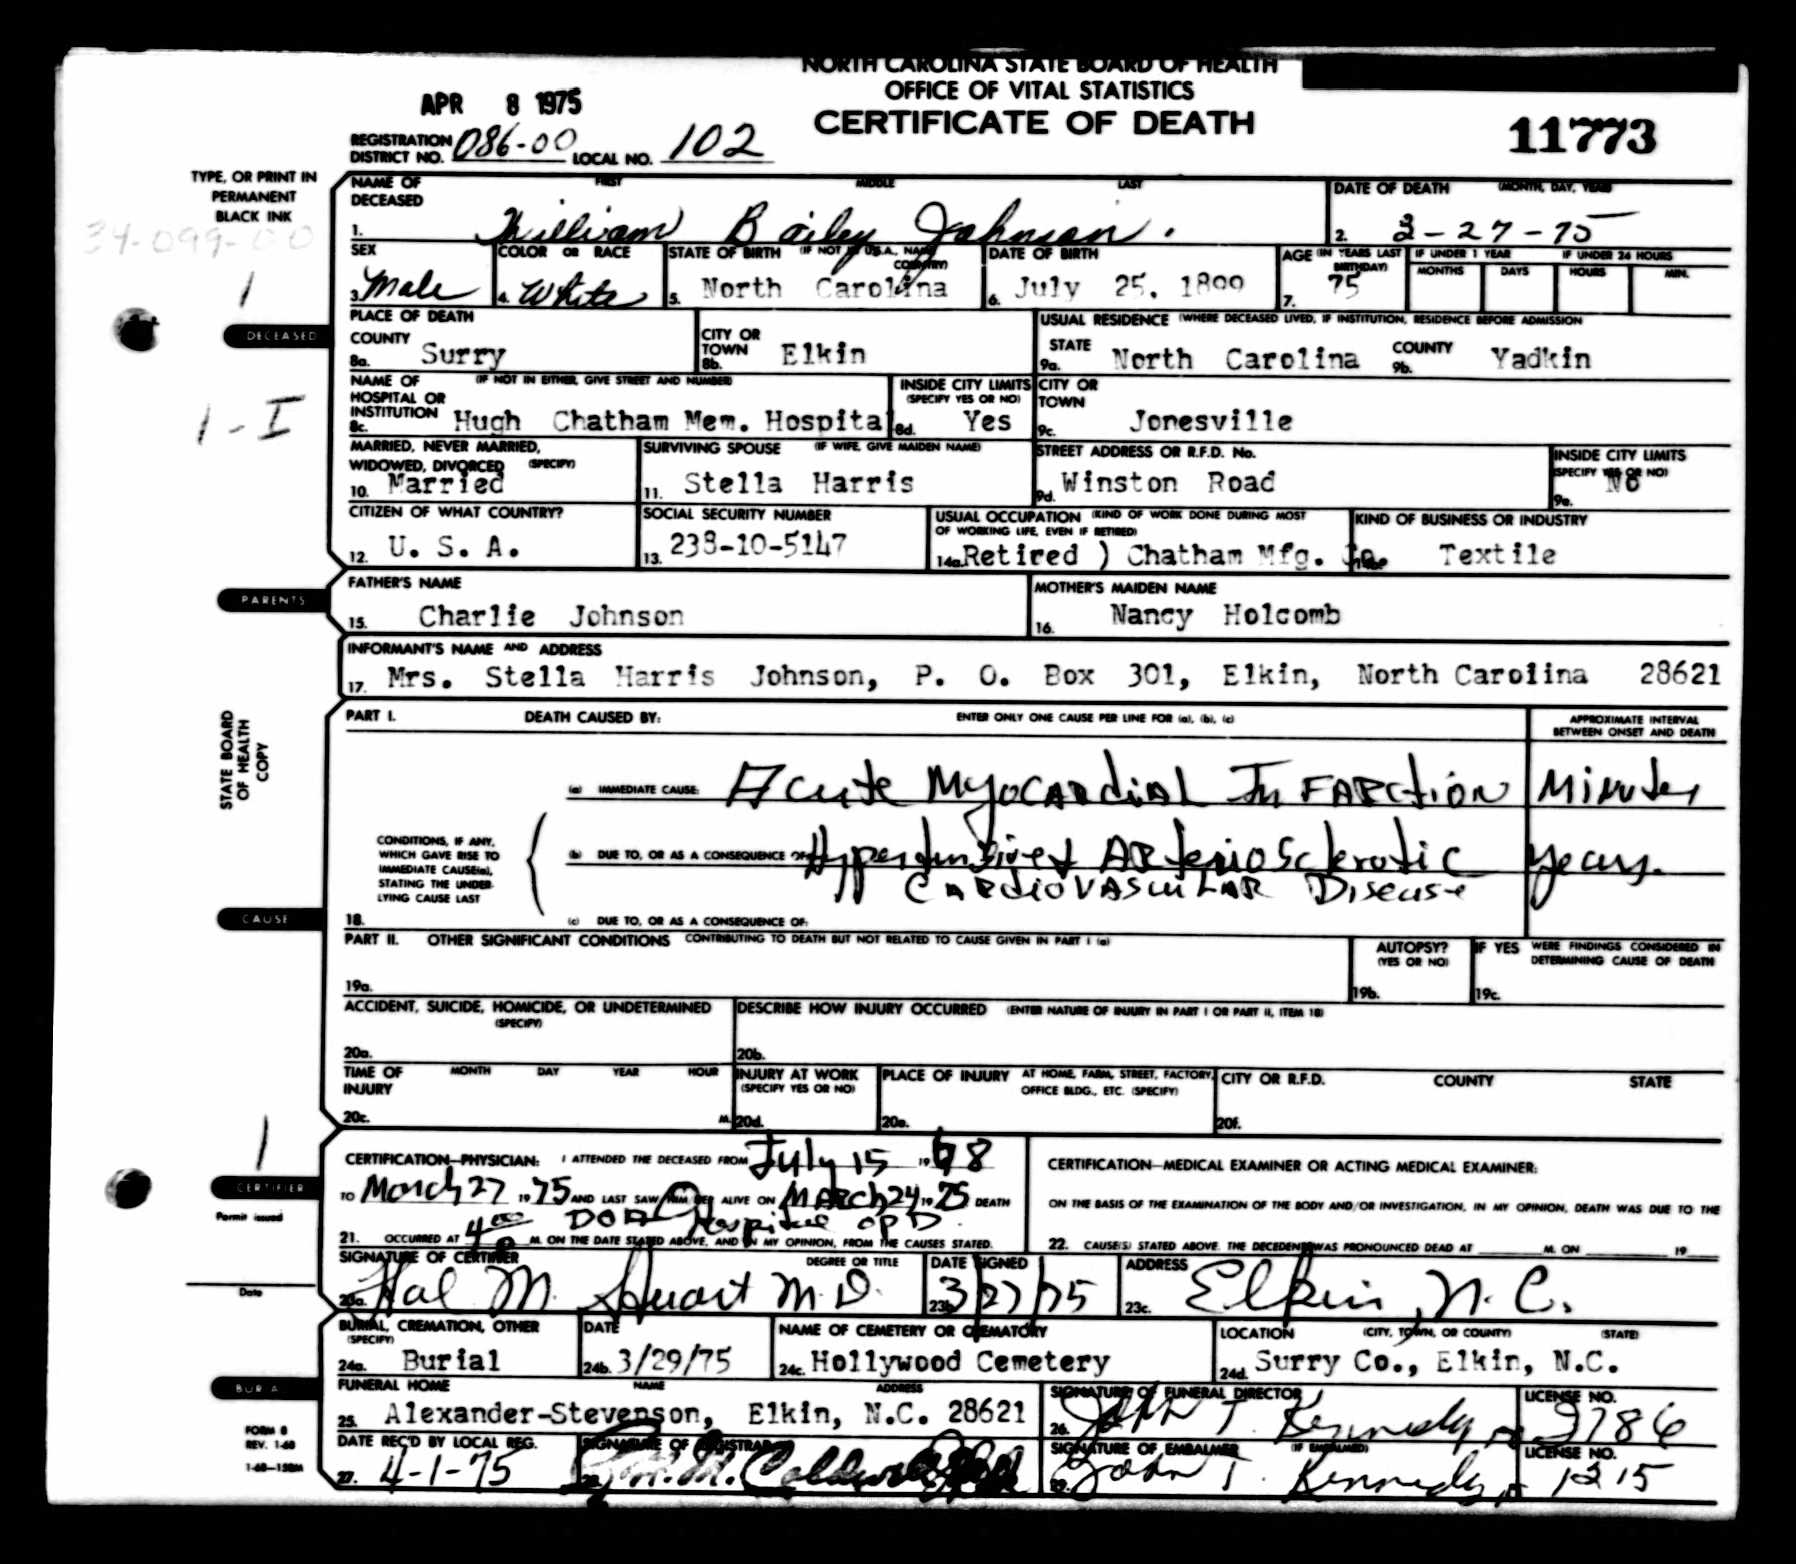 NORTH CAROLINA STATE BOARD OF HEALTH
OFFICE OF VITAL STATISTICS
CERTIFICATE OF DEATH
APR 8 1975
11773
REGISTRATION DISTRICT NO. 086-00 LOCAL NO. 102
TYPE, OR PRINT IN PERMANENT BLACK INK
34-099-00
1
NAME OF DECEASED FIRST MIDDLE LAST
1. William Bailey Johnson.
DATE OF DEATH (MONTH, DAY, YEAR)
2. 3-27-75
SEX 3. Male
COLOR OR RACE 4. White
STATE OF BIRTH (IF NOT IN U.S.A., NAME COUNTRY) 5. North Carolina
DATE OF BIRTH 6. July 25, 1899
AGE (IN YEARS LAST BIRTHDAY) 7. 75
IF UNDER 1 YEAR MONTHS DAYS
IF UNDER 24 HOURS HOURS MIN.
DECEASED
PLACE OF DEATH
COUNTY 8a. Surry
CITY OR TOWN 8b. Elkin
USUAL RESIDENCE (WHERE DECEASED LIVED, IF INSTITUTION, RESIDENCE BEFORE ADMISSION
STATE 9a. North Carolina
COUNTY 9b. Yadkin
1-I
NAME OF HOSPITAL OR INSTITUTION (IF NOT IN EITHER, GIVE STREET AND NUMBER) 8c. Hugh Chatham Mem. Hospital
INSIDE CITY LIMITS (SPECIFY YES OR NO) 8d. Yes
CITY OR TOWN 9c. Jonesville
MARRIED, NEVER MARRIED, WIDOWED, DIVORCED (SPECIFY) 10. Married
SURVIVING SPOUSE (IF WIFE, GIVE MAIDEN NAME) 11. Stella Harris
STREET ADDRESS OR R.F.D. No. 9d. Winston Road
INSIDE CITY LIMITS (SPECIFY YES OR NO) 9e. No
CITIZEN OF WHAT COUNTRY? 12. U. S. A.
SOCIAL SECURITY NUMBER 13. 238-10-5147
USUAL OCCUPATION (KIND OF WORK DONE DURING MOST OF WORKING LIFE, EVEN IF RETIRED) 14a. Retired ) Chatham Mfg. Co.
KIND OF BUSINESS OR INDUSTRY Textile
PARENTS
FATHER'S NAME 15. Charlie Johnson
MOTHER'S MAIDEN NAME 16. Nancy Holcomb
INFORMANT'S NAME AND ADDRESS
17. Mrs. Stella Harris Johnson, P. O. Box 301, Elkin, North Carolina 28621
STATE BOARD OF HEALTH COPY
PART I. DEATH CAUSED BY: ENTER ONLY ONE CAUSE PER LINE FOR (a), (b), (c)
APPROXIMATE INTERVAL BETWEEN ONSET AND DEATH
(a) IMMEDIATE CAUSE: Acute Myocardial Infarction Minutes
CONDITIONS, IF ANY, WHICH GAVE RISE TO IMMEDIATE CAUSE(a), STATING THE UNDERLYING CAUSE LAST
(b) DUE TO, OR AS A CONSEQUENCE OF: Hypertensive & Arteriosclerotic years.
Cardiovascular Disease
CAUSE
18. (c) DUE TO, OR AS A CONSEQUENCE OF:
PART II. OTHER SIGNIFICANT CONDITIONS CONTRIBUTING TO DEATH BUT NOT RELATED TO CAUSE GIVEN IN PART I (a)
19a.
AUTOPSY? (YES OR NO) 19b.
IF YES WERE FINDINGS CONSIDERED IN DETERMINING CAUSE OF DEATH 19c.
ACCIDENT, SUICIDE, HOMICIDE, OR UNDETERMINED (SPECIFY) 20a.
DESCRIBE HOW INJURY OCCURRED (ENTER NATURE OF INJURY IN PART I OR PART II, ITEM 18) 20b.
TIME OF INJURY MONTH DAY YEAR HOUR 20c. M.
INJURY AT WORK (SPECIFY YES OR NO) 20d.
PLACE OF INJURY AT HOME, FARM, STREET, FACTORY, OFFICE BLDG., ETC. (SPECIFY) 20e.
CITY OR R.F.D. COUNTY STATE 20f.
1
CERTIFIER
Permit issued
Date
CERTIFICATION—PHYSICIAN: I ATTENDED THE DECEASED FROM July 15 1968
TO March 27 1975 AND LAST SAW HIM/HER ALIVE ON March 24 1975 DEATH
DOA Hospital OPD
21. OCCURRED AT 4:00 P M. ON THE DATE STATED ABOVE, AND IN MY OPINION, FROM THE CAUSES STATED.
CERTIFICATION—MEDICAL EXAMINER OR ACTING MEDICAL EXAMINER:
ON THE BASIS OF THE EXAMINATION OF THE BODY AND/OR INVESTIGATION, IN MY OPINION, DEATH WAS DUE TO THE
22. CAUSE(S) STATED ABOVE. THE DECEDENT WAS PRONOUNCED DEAD AT M. ON 19
SIGNATURE OF CERTIFIER DEGREE OR TITLE 23a. Hal M. Stuart M.D.
DATE SIGNED 23b. 3/27/75
ADDRESS 23c. Elkin, N.C.
BURIAL, CREMATION, OTHER (SPECIFY) 24a. Burial
DATE 24b. 3/29/75
NAME OF CEMETERY OR CREMATORY 24c. Hollywood Cemetery
LOCATION (CITY, TOWN, OR COUNTY) (STATE) 24d. Surry Co., Elkin, N.C.
BURIAL
FUNERAL HOME NAME ADDRESS
25. Alexander-Stevenson, Elkin, N.C. 28621
SIGNATURE OF FUNERAL DIRECTOR 26. John T. Kennedy, Jr.
LICENSE NO. 2786
FORM 8
REV. 1-68
1-68—150M
DATE REC'D BY LOCAL REG. 27. 4-1-75
SIGNATURE OF REGISTRAR 28. M. Caldwell
SIGNATURE OF EMBALMER (IF EMBALMED) 29. John T. Kennedy, Jr.
LICENSE NO. 1215